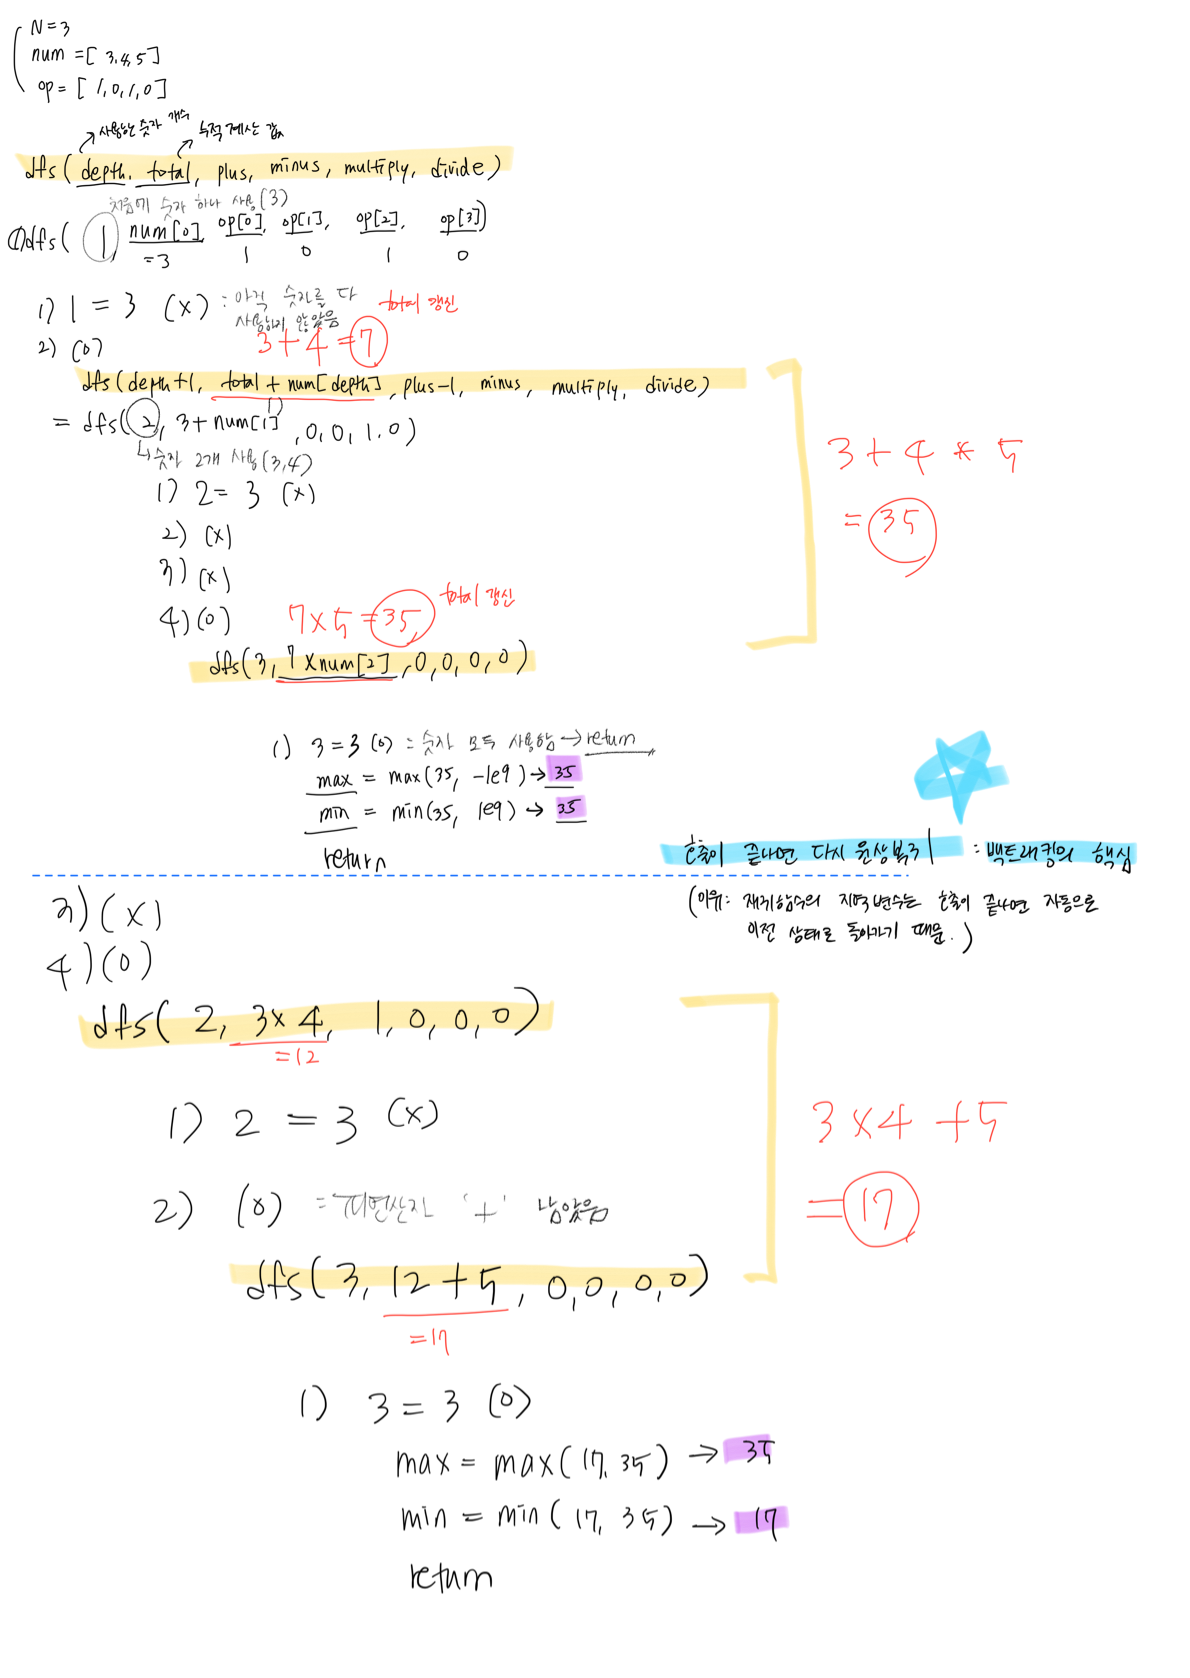 N=3
num =[ 3,4,5]
op= [ 1,0,1,0]
사용한 숫자 개수
누적 계산 값
dfs( depth, total, plus, minus, multiply, divide)
처음에 숫자 하나 사용(3)
①dfs( 1, num[0], op[0], op[1], op[2], op[3])
=3 1 0 1 0
1) 1 = 3 (x) : 아직 숫자를 다 사용하지 않았음
total 갱신
3+4=7
2) (o)
dfs(depth+1, total + num[depth], plus-1, minus, multiply, divide)
= dfs(2, 3+num[1], 0, 0, 1, 0)
↳숫자 2개 사용(3,4)
3+4 * 5
= 35
1) 2= 3 (x)
2) (x)
3) (x)
4)(o) 7×5=35 total 갱신
dfs(3, 7×num[2], 0,0,0,0)
1) 3=3 (o) = 숫자 모두 사용함→return
max = max(35, -1e9)→ 35
min = min(35, 1e9) → 35
return
호출이 끝나면 다시 원상복귀 : 백트래킹의 핵심
(이유: 재귀함수의 지역변수는 호출이 끝나면 자동으로
이전 상태로 돌아가기 때문.)
3)(x)
4)(o)
dfs( 2, 3×4, 1,0,0,0)
=12
1) 2 = 3 (x)
3×4 +5
= 17
2) (o) = '+' 남았음
dfs(3, 12+5, 0,0,0,0)
=17
1) 3=3 (o)
max = max(17,35) → 35
min = min(17, 35) → 17
return